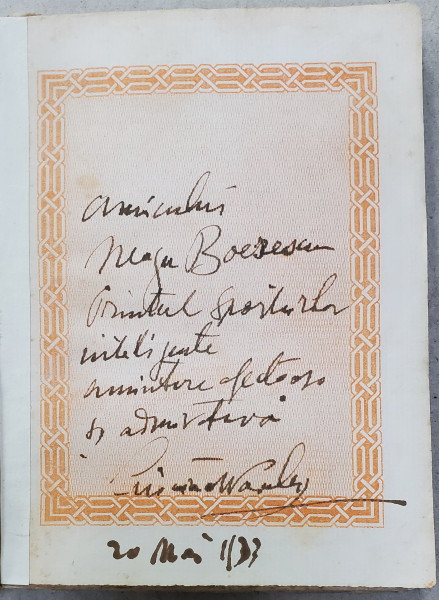 amicului
Neagu Boerescu
Printul sporturilor
inteligente
amintire afectuoasa
si admirativă
20 Mai 1933